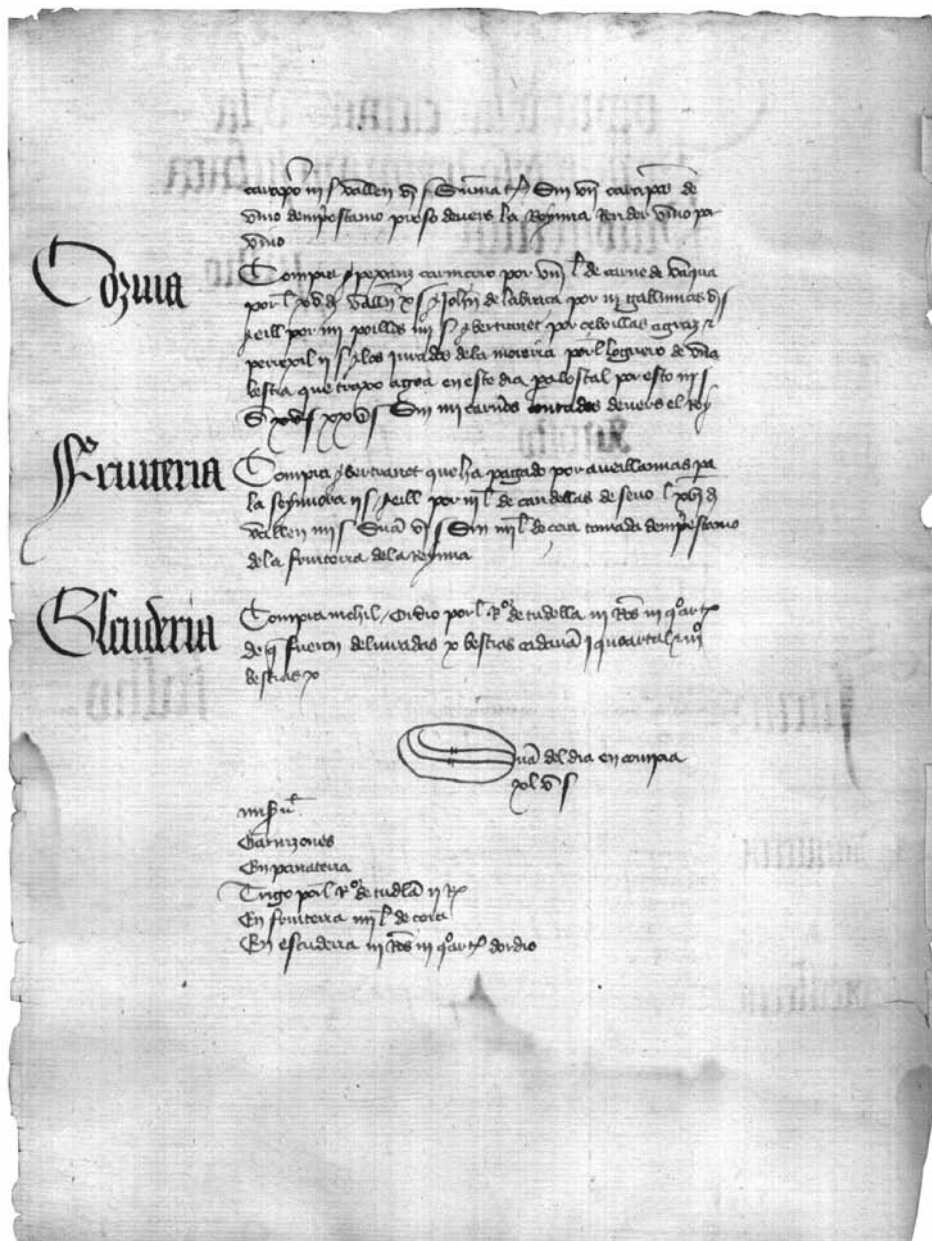 carapito iii s vallen vi s Suma Sin vii carapitos de
vino demprestamo preso devers la Reynna Render vino por
vino
Cozina
Compra peyranz carnicero por viii l de carne de vaqua
por l xv d vallen x s Johan de labraca por iii gallinas vi s
eill por iiii poillos iiii s bertranet por ceboillas agraz
perrexil ii s los jurados de la moreria por l loguero de una
bestia que traxo agoa en este dia pa lostal por esto iii s
Sin iiii carneros contados devers el Rey
Fruiteria
Compra bertranet que ha pagado por aveillanas pa
la seynnora ii s eill por iii l de candellas de sevo l xvi d
vallen iiii s Suma vi s Sin iiii l de cera tomada demprestamo
de la fruiteria de la Reynna
Escuderia
Compra nichil Ordio por l R de tudella iii Ros iii quart
de q fueron delivradas x bestias cadauna i quartal
bestias x
Suma del dia en compra
xl v s
Garnizones
En panateria
Trigo por l R de tudela ii R
En fruiteria iiii l de cera
En escuderia iii Ros iii quart dordio